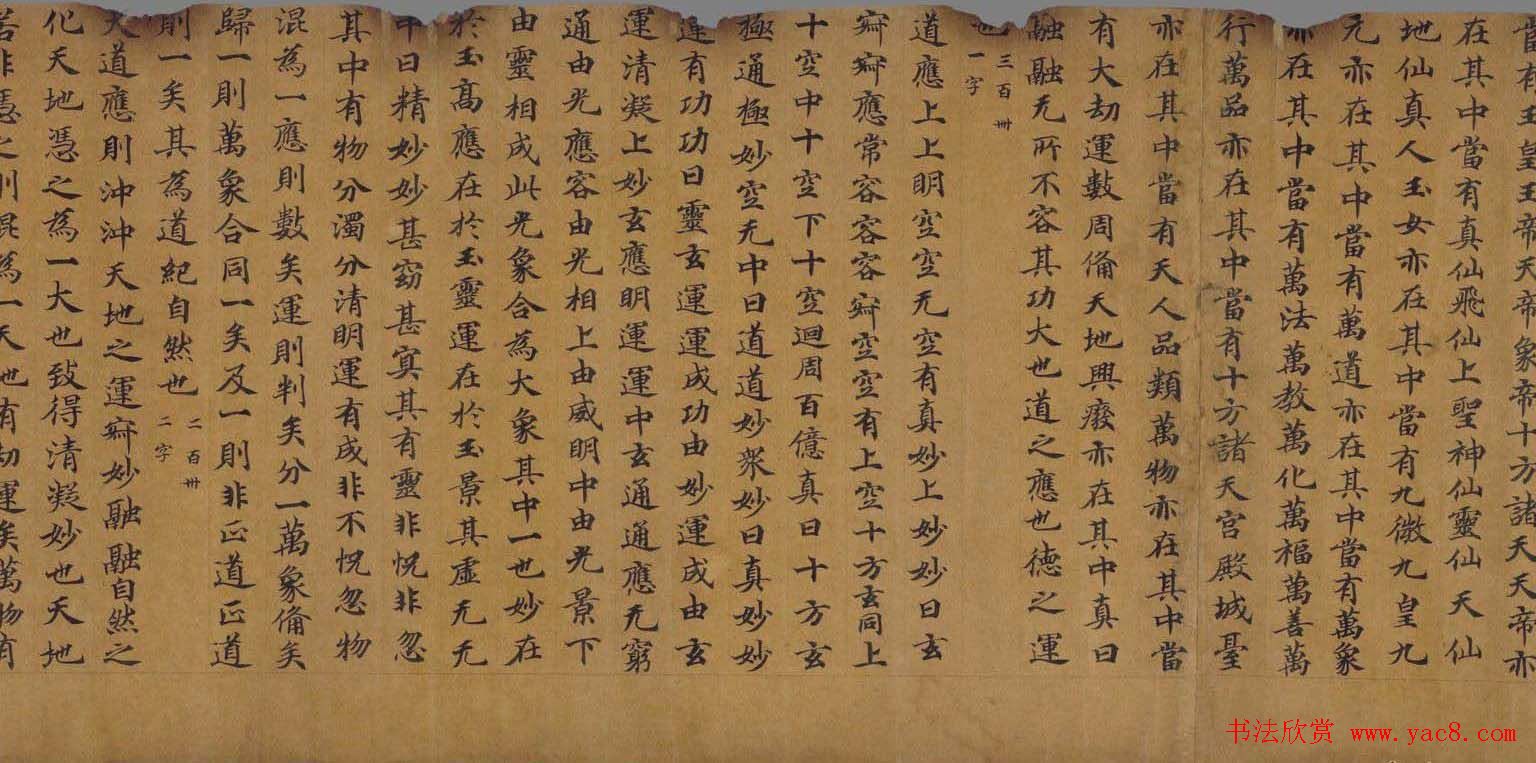 當有玉皇玉帝天帝象帝十方諸天天帝亦
在其中當有真仙飛仙上聖神仙靈仙天仙
地仙真人玉女亦在其中當有九微九皇九
元亦在其中當有萬道亦在其中當有萬象
亦在其中當有萬法萬教萬化萬福萬善萬
行萬品亦在其中當有十方諸天宫殿城臺
亦在其中當有天人品類萬物亦在其中當
有大劫運數周俻天地興癈亦在其中真曰
融融无所不容其功大也道之應也德之運
也
三百卌
一字
道應上上明空空无空有真妙上妙妙曰玄
應常容容容空空有上空十方玄同上
十空中十空下十空迴周百億真曰十方玄
極通極妙空无中曰道道妙衆妙曰真妙妙
運有功功曰靈玄運運成功由妙運成由玄
運清凝上妙玄應明運運中玄通通應无窮
通由光應容由光相上由威明中由光景下
由靈相成此光象合為大象其中一也妙在
於玉高應在於玉靈運在於玉景其虛无无
中曰精妙妙甚窈甚㝠其有靈非怳非忽
其中有物分濁分清明運有成非不怳忽物
混為一應則數矣運則判矣分一萬象俻矣
歸一則萬象合同一矣及一則非正道正道
則一矣其為道紀自然也
二百卌
二字
大道應則沖沖天地之運妙融融自然之
化天地憑之為一大也致得清凝妙也天地
若非憑之則混為一天地有劫運矣萬物有
书法欣赏 www.yac8.com